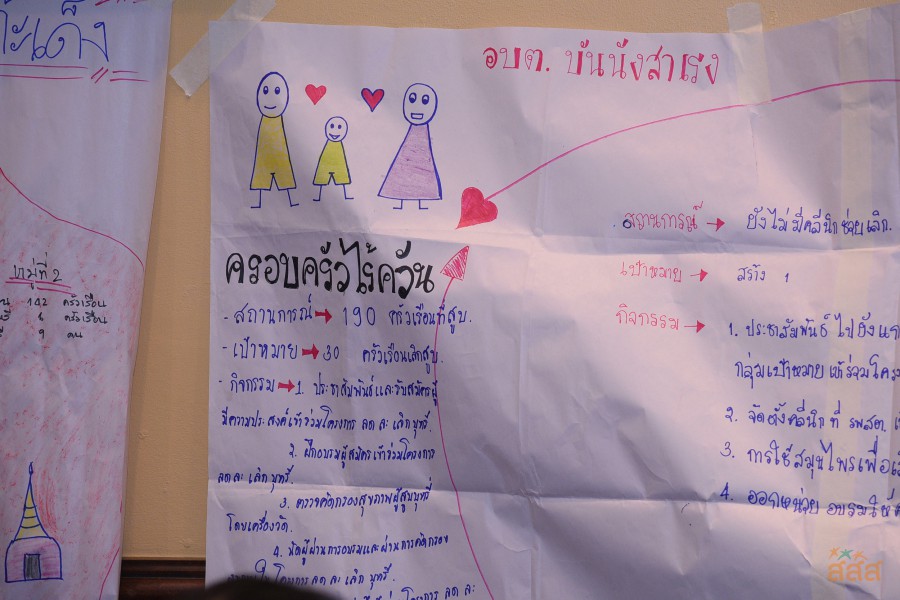 ะเด็ง
หมู่ที่ 2
142 ครัวเรือน
6 ครัวเรือน
9 คน
อบต. บันนังสาเรง
ครอบครัวไร้ควัน
- สถานการณ์ → 190 ครัวเรือนที่สูบ.
- เป้าหมาย → 30 ครัวเรือนเลิกสูบ.
- กิจกรรม → 1. ประชาสัมพันธ์และรับสมัครผู้
มีความประสงค์เข้าร่วมโครงการ ลด ละ เลิก บุหรี่.
2. ฝึกอบรมผู้สมัครเข้าร่วมโครงการ
ลด ละ เลิก บุหรี่.
3. ตรวจคัดกรองสุขภาพผู้สูบบุหรี่
โดยเครื่องวัด.
4. นัดผู้ผ่านการอบรมและผ่านการคัดกรอง
โครงการ ลด ละ เลิก บุหรี่.
โครงการ ลด ละ
สถานการณ์ → ยังไม่มีคลีนิกช่วยเลิก.
เป้าหมาย → สร้าง 1
กิจกรรม → 1. ประชาสัมพันธ์ ไปยัง
กลุ่มเป้าหมาย เข้าร่วมโคร
2. จัดตั้งคลีนิกที่ รพสต.
3. การใช้สมุนไพรเพื่อ
4. ออกหน่วย อบรมให้
สสส